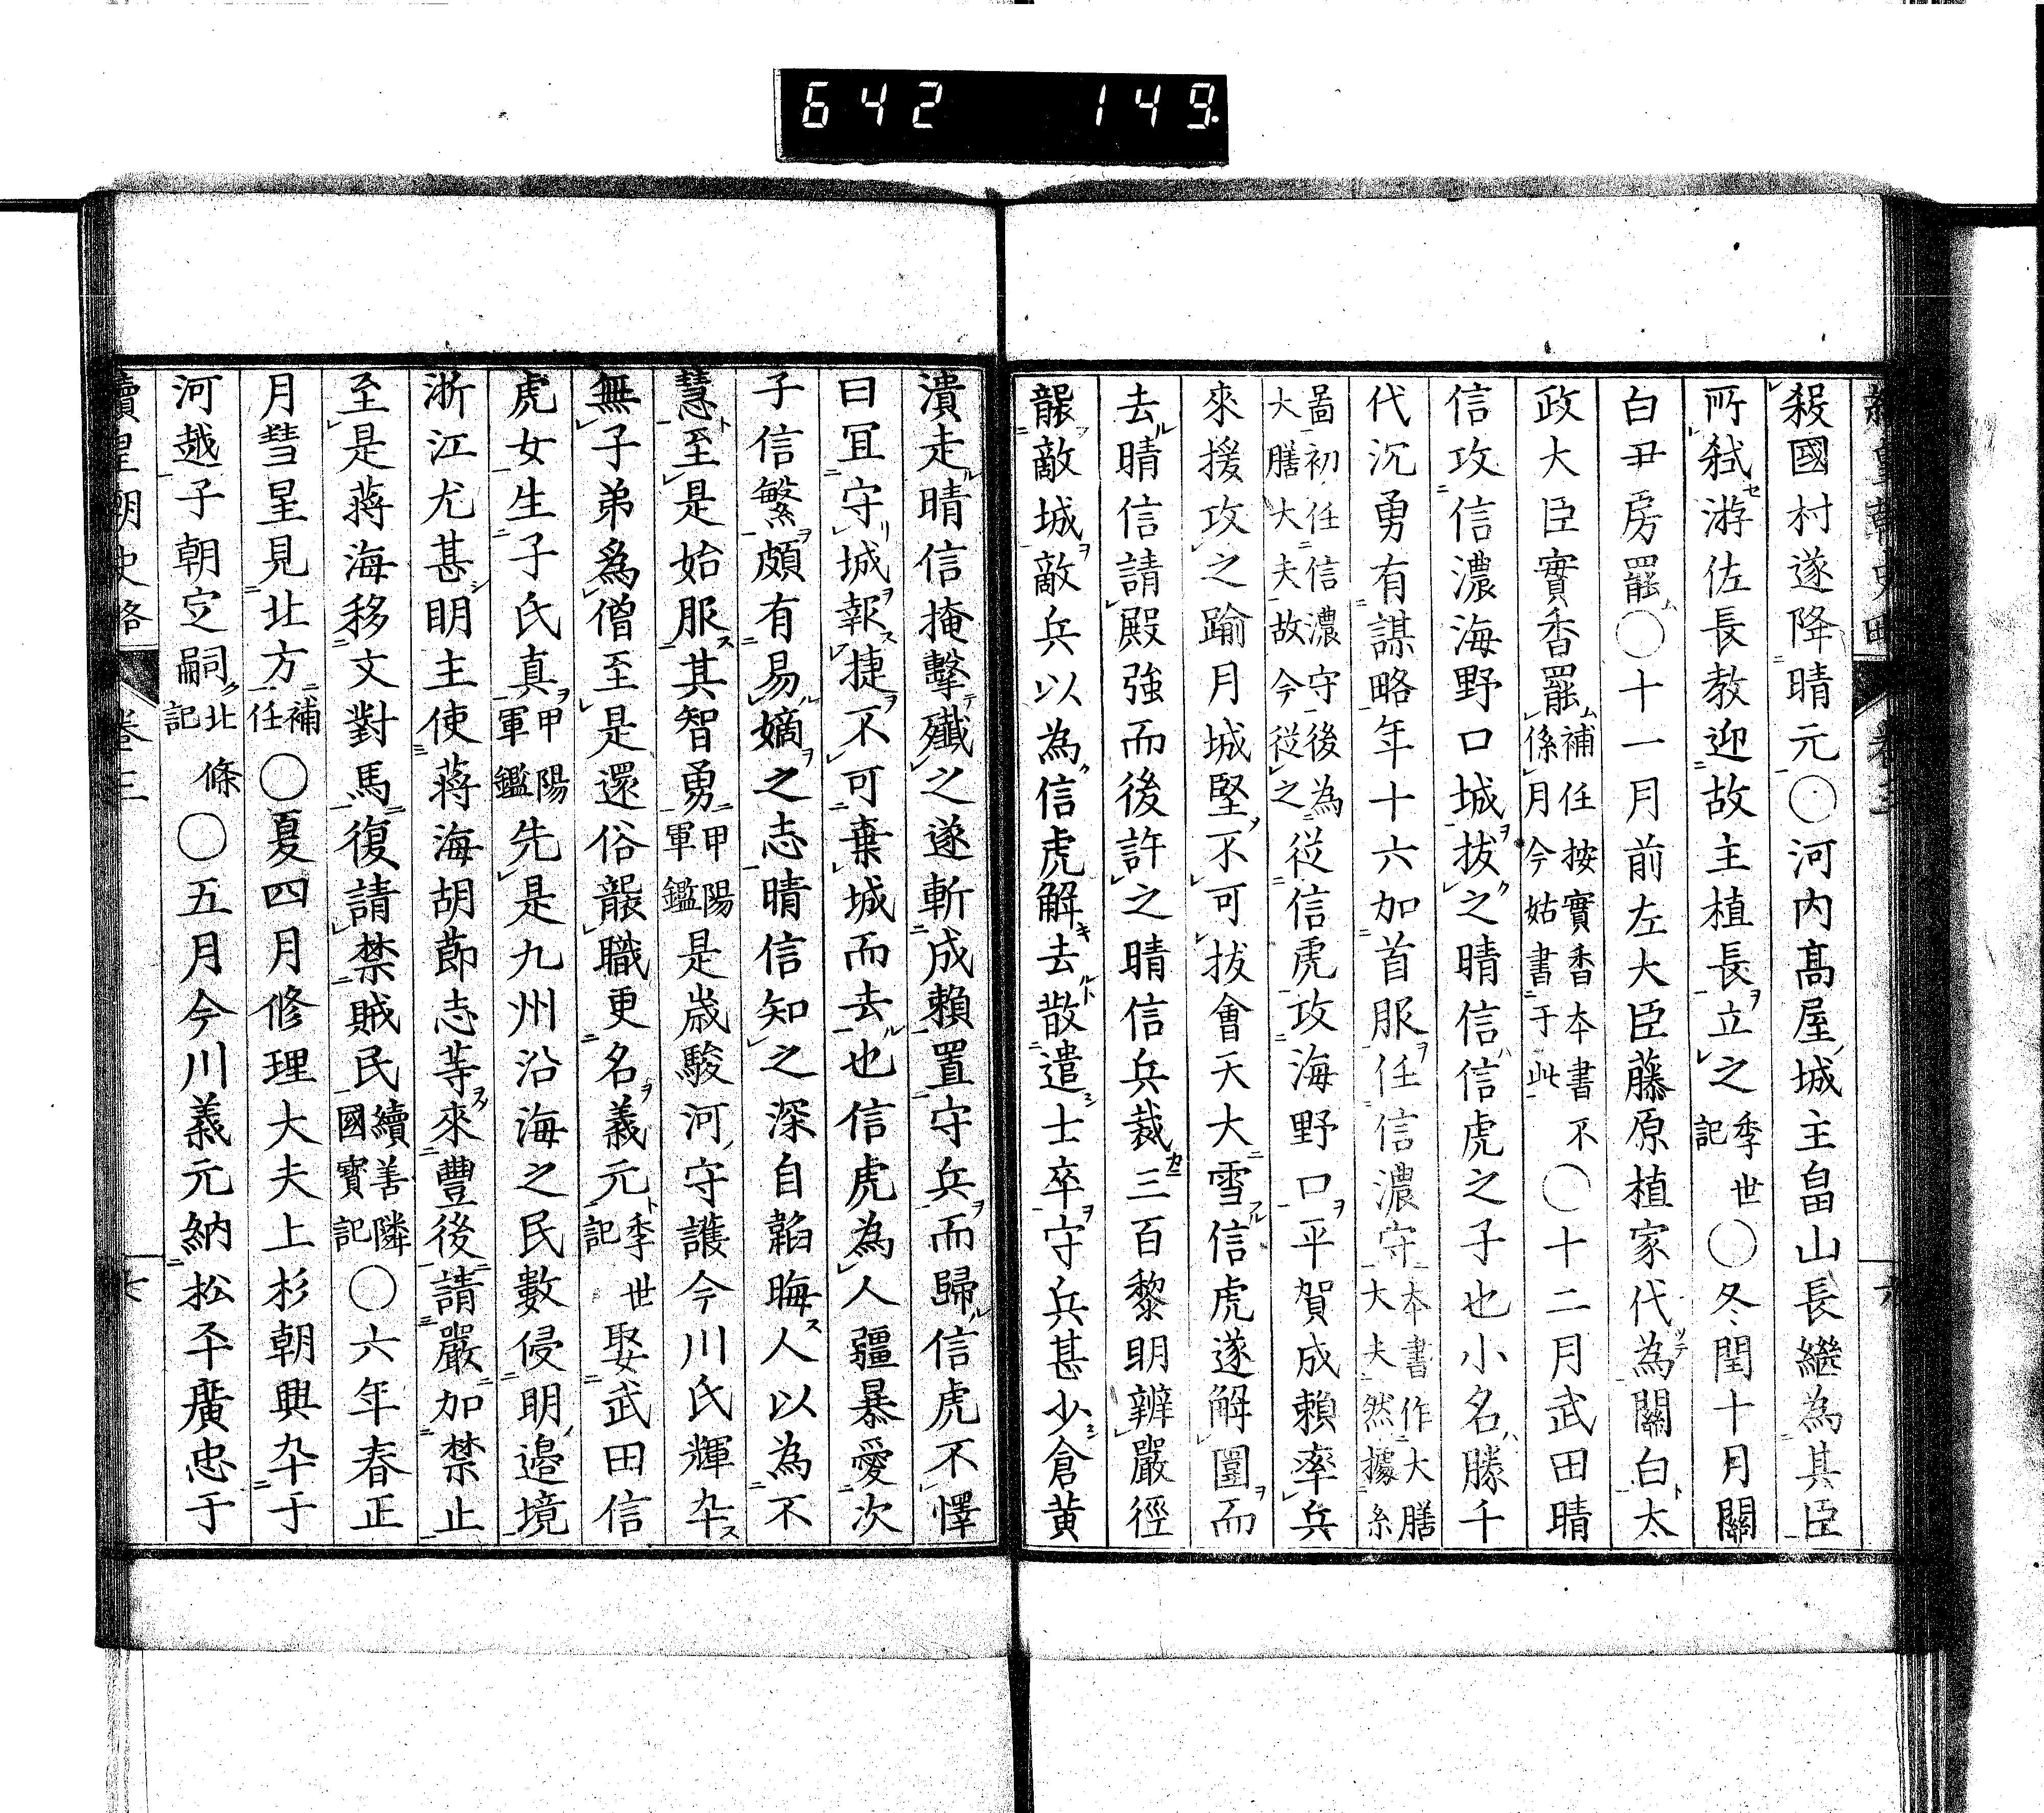 642 149
殺國村遂降晴元○河内髙屋城主畠山長繼為其臣
所弑游佐長教迎故主植長立之季世記○冬閏十月關
白尹房罷○十一月前左大臣藤原植家代為關白太
政大臣實香罷補任按實香本書不係月今姑書于此○十二月武田晴
信攻信濃海野口城拔之晴信信虎之子也小名勝千
代沉勇有謀略年十六加首服任信濃守本書作大膳大夫然據系
啚初任信濃守後為大膳大夫故今從之從信虎攻海野口平賀成頼率兵
來援攻之踰月城堅不可拔會天大雪信虎遂解圍而
去晴信請殿強而後許之晴信兵裁三百黎明辨嚴徑
襲敵城敵兵以為信虎解去散遣士卒守兵甚少倉黄
潰走晴信掩擊殲之遂斬成頼置守兵而歸信虎不懌
曰冝守城報捷不可棄城而去也信虎為人彊暴愛次
子信繁頗有易嫡之志晴信知之深自韜晦人以為不
慧至是始服其智勇甲陽軍鑑是歳駿河守護今川氏輝卒
無子弟為僧至是還俗襲職更名義元季世記娶武田信
虎女生子氏真甲陽軍鑑先是九州沿海之民數侵明邉境
浙江尤甚明主使蔣海胡節志等來豐後請嚴加禁止
至是蔣海移文對馬復請禁賊民續善隣國寳記○六年春正
月彗星見北方補任○夏四月修理大夫上杉朝興卒于
河越子朝定嗣北條記○五月今川義元納松平廣忠于
續皇朝史略 卷三